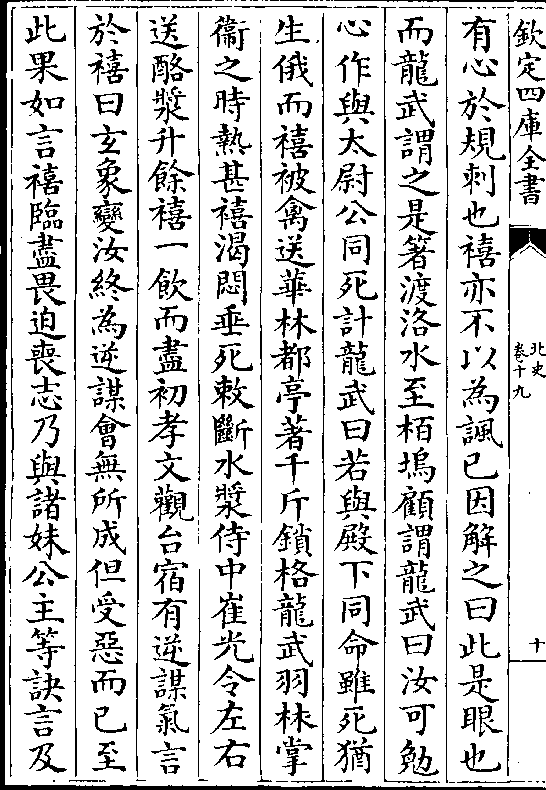 欽定四庫全書
北史
卷十九
十
有心於規刺也禧亦不以為諷已因解之曰此是眼也
而龍武謂之是箸渡洛水至栢塢顧謂龍武曰汝可勉
心作與太尉公同死計龍武曰若與殿下同命雖死猶
生俄而禧被禽送華林都亭著千斤鎖格龍武羽林掌
衞之時熱甚禧渴悶垂死敕斷水漿侍中崔光令左右
送酪漿升餘禧一飲而盡初孝文觀台宿有逆謀氣言
於禧曰玄象變汝終為逆謀會無所成但受惡而已至
此果如言禧臨盡畏迫喪志乃與諸妹公主等訣言及